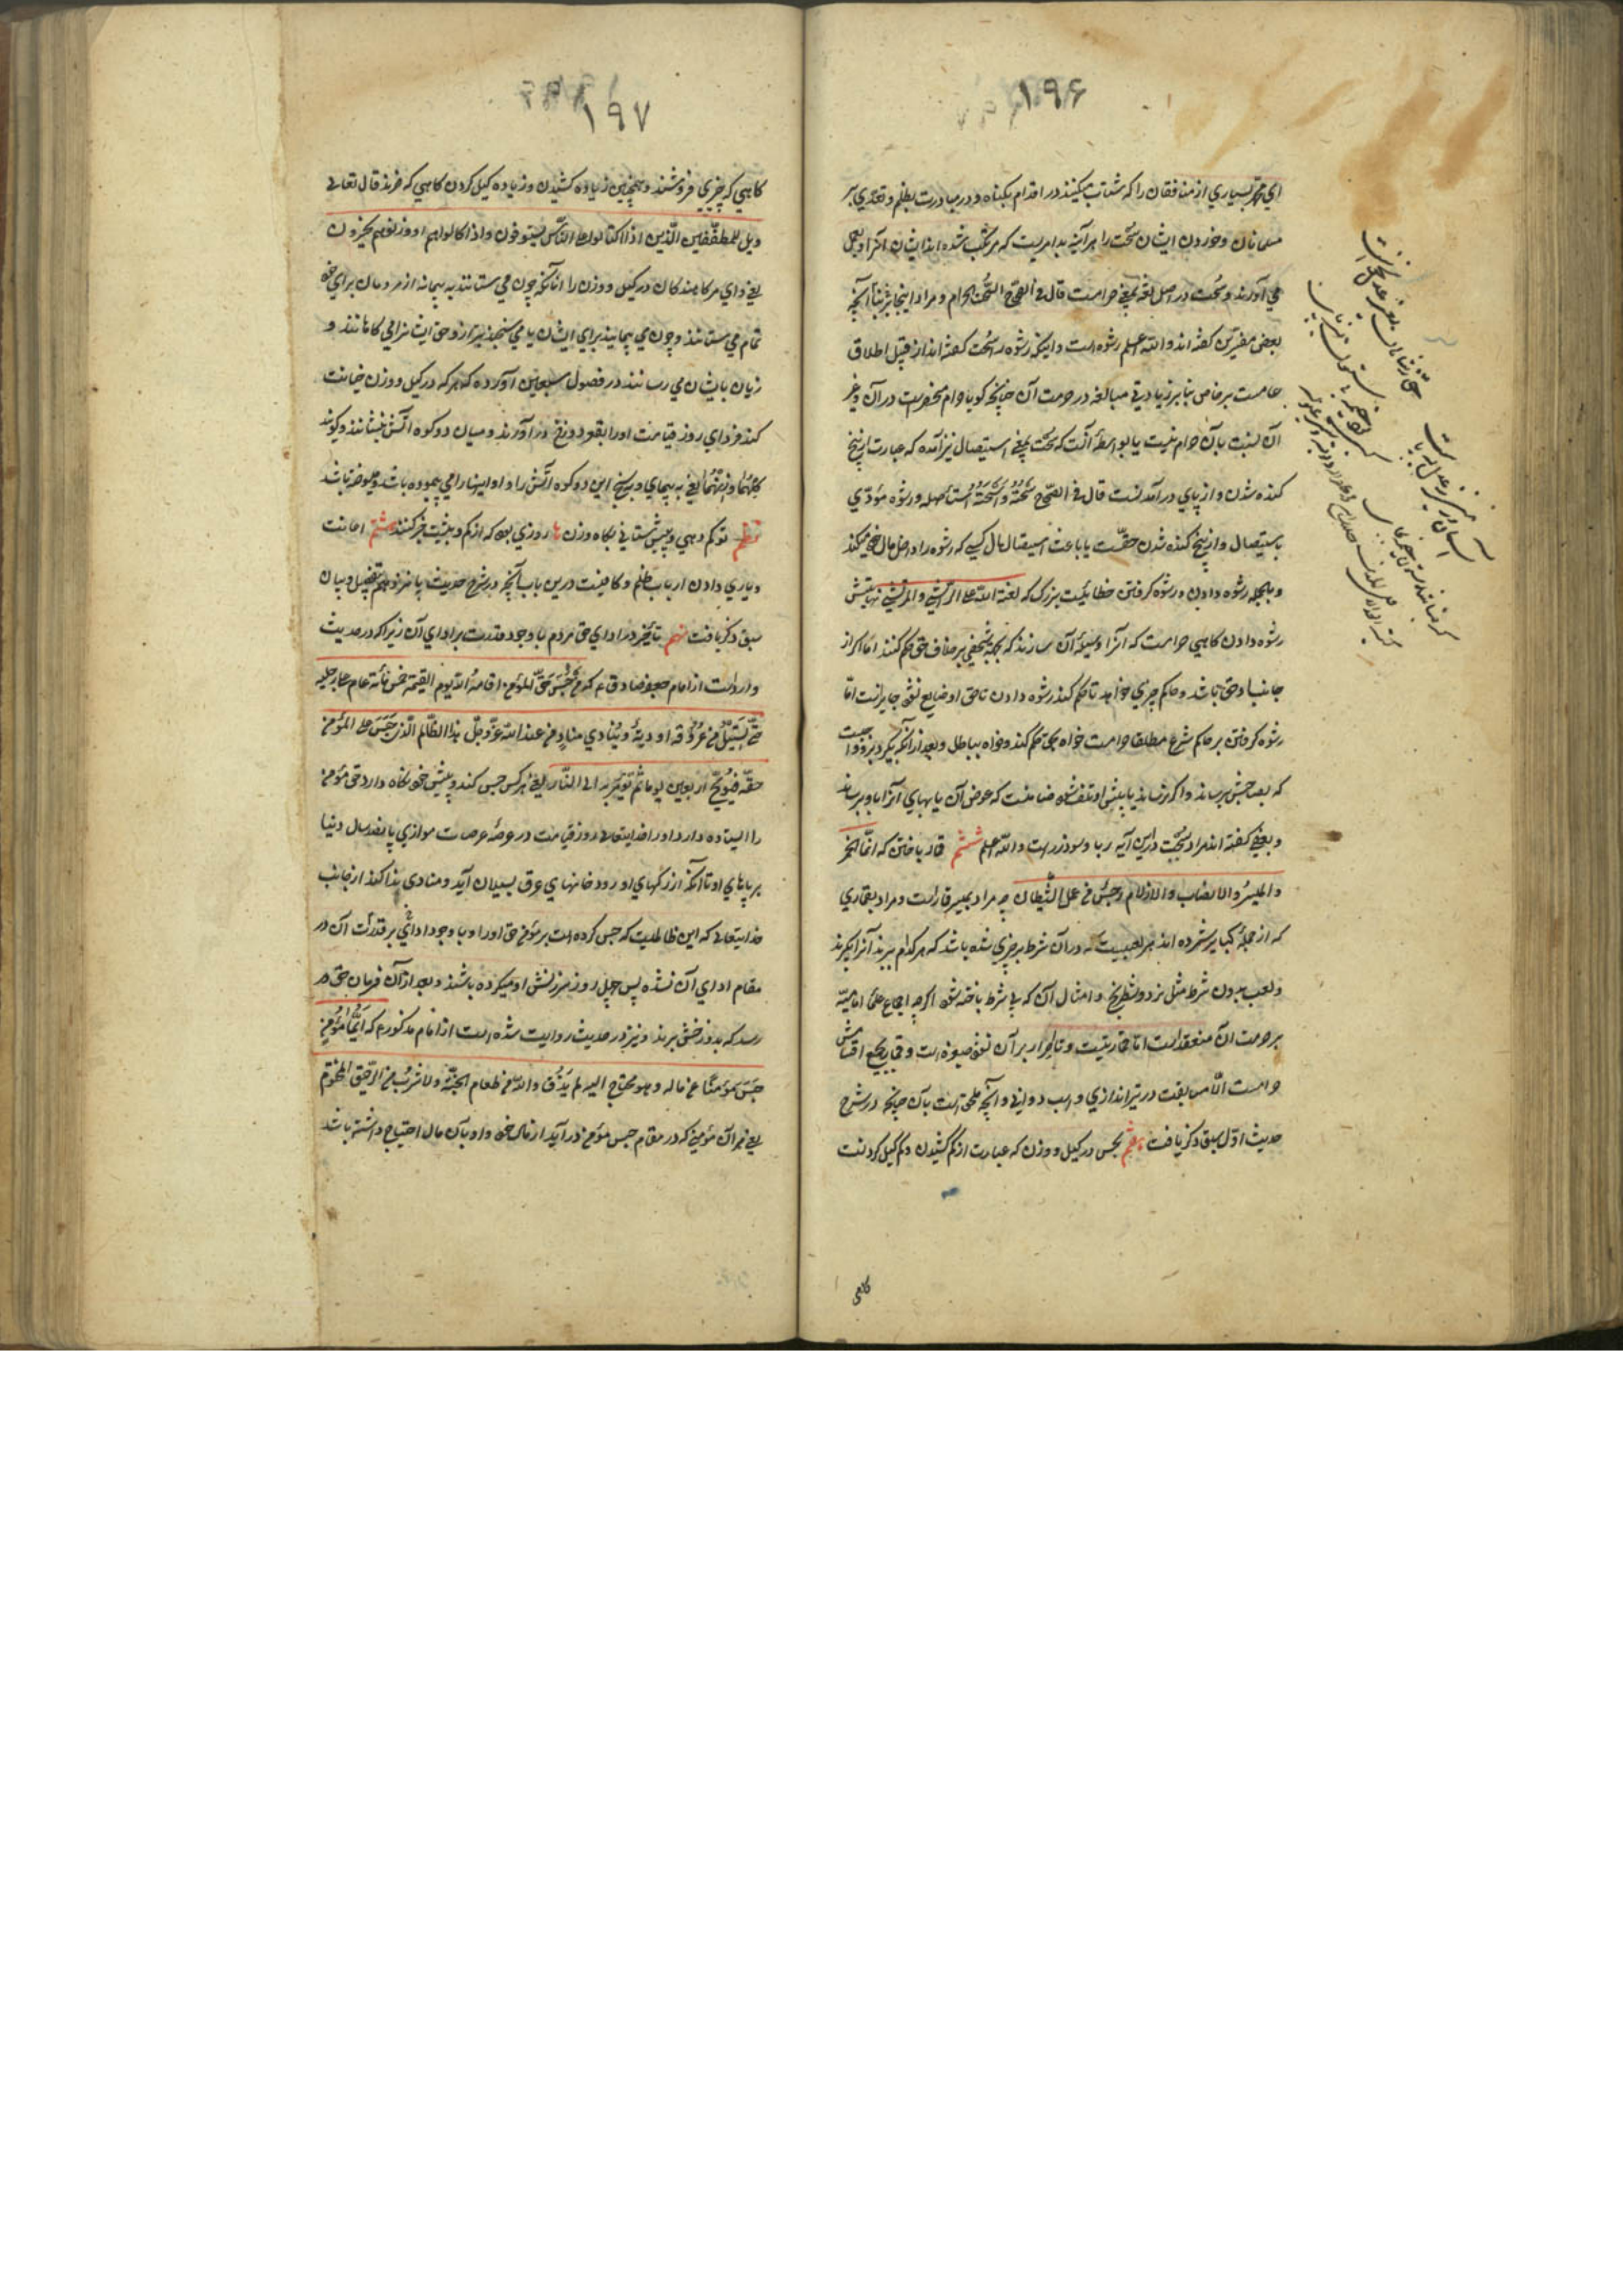 ۱۹۶
اي محمد بسياري از منافقان را كه شتاب ميكنند در اقدام بكناه و در مبادرت بظلم و تعدي بر
مسلمانان و خوردن ايشان سُحت را هر آينه بد امريست كه مرتكب شده اند ايشان آنرا و بعمل
مي آورند و سُحت در اصل لغة بمعني حرامست قال في الصّحاح السُّحت الحرام و مراد اينجا بنا بر آنچه
بعضي مفسّرين كفته اند و اللّه اعلم رشوه است و اينكه رشوه را سُحت كفته اند از قبيل اطلاق
عامست بر خاص بنا بر زيادتي مبالغه در حرمت آن چنانچه كويا حرام منحصر است در آن و غير
آن نسبت بآن حرام نيست يا بواسطهٔ آنست كه سُحت بمعني استيصال نيز آمده كه عبارت از بيخ
كنده شدن و از پاي در آمدنست قال في الصّحاح سَحَتَهُ وَ اَسْحَتَهُ اِستأصله و رشوه مؤدّي
باستيصال و از بيخ كنده شدن حقّست يا باعث استيصال مال كسي كه رشوه را داخل مال خود ميكند
و بالجمله رشوه دادن و رشوه كرفتن خطائيست بزرك كه لعنة اللّه علي الرّاشي و المرتشي نهايتش
رشوه دادن كاهي حرامست كه آنرا وسيلهٔ آن سازند كه بجهة شخصي بر خلاف حق حكم كنند امّا اكر از
جانب او حق باشد و حاكم چيزي خواهد تا حكم كند رشوه دادن تا حق او ضايع نشود جايز است امّا
رشوه كرفتن بر حاكم شرع مطلقا حرامست خواه بحق حكم كند و خواه بباطل و بعد از آنكه بكيرد بر او واجبست
كه بصاحبش برساند و اكر نرساند يا پيش او تلف شود ضامنست كه عوض آن يا بهاي آنرا باو برساند
و بعضي كفته اند مراد بسُحت در اين آيه ربا و سود زر است و اللّه اعلم ششم قمار باختن كه انّما الخمر
و الميسرُ و الانصاب و الازلام رجسٌ من عمل الشّيطان چه مراد بميسر قمار است و مراد بقماري
كه از جملهٔ كباير شمرده اند هر لعبيست كه در آن شرط بر چيزي شده باشد كه هر كدام ببرند آنرا بكيرند
و لعب بدون شرط مثل نرد و شطرنج و امثال آن كه بي شرط باخته شود اكر چه اجماع علماء اماميّه
بر حرمت آن منعقد است امّا قمار نيست و تا اصرار بر آن نشود صغيره است و قمار بجميع اقسامش
حرامست الّا مسابقت در تيراندازي و اسب دواني و آنچه ملحق است بآن چنانچه در شرح
حديث اوّل سبق ذكر يافت هفتم بخس در كيل و وزن كه عبارت از كم كشيدن و كم كيل كردنست
كاهي
۱۹۷
كاهي كه چيزي فروشند و همچنين زياده كشيدن و زياده كيل كردن كاهي كه خرند قال تعالي
ويل للمطفّفين الّذين اذا اكتالوا علي النّاس يستوفون و اذا كالوهم او وزنوهم يخسرون
يعني واي مر كاهندكان در كيل و وزن را آنانكه چون مي ستانند به پيمانه از مردمان براي خود
تمام مي ستانند و چون مي پيمايند براي ايشان يا مي سنجند بترازو حق ايشانرا مي كاهانند و
زيان بايشان مي رسانند در فصول سبعين آورده كه هر كه در كيل و وزن خيانت
كند فرداي روز قيامت او را بقعر دوزخ در آورند و ميان دو كوه آتش بنشانند و كويند
كِلْهُما و زِنْهُما يعني به پيماي و بسنج اين دو كوه آتش را و او اينها را مي پيموده باشد و ميسوخته باشد
نظم تو كم دهي و بيش ستاني بكاه وزن ها روزي بود كه از كم و بيشيت خبر كنند هشتم اعانت
و ياري دادن ارباب ظلم و كافيست درين باب آنچه در شرح حديث پانزدهم بتفصيل و بيان
سبق ذكر يافت نهم تأخير در اداي حق مردم با وجود قدرت بر اداي آن زيرا كه در حديث
وارد است از امام جعفر صادق ع كه مَنْ حَبَسَ حَقَّ المؤمن اقامهُ اللّه يوم القيمة خمس مائة عام علي رجليه
حتّي يَسيلَ من عرُوقه اودية و يُنادي منادٍ من عند اللّه عزّ و جلّ هذا الظّالم الّذي حَبَسَ علي المؤمن
حقّه فيوبّخ اربعين يوما ثم يؤمر به الي النّار يعني هر كس حبس كند و پيش خود نكاه دارد حق مؤمن
را ايستاده دارد او را خدايتعالي روز قيامت در عرصهٔ عرصات موازي پانصد سال دنيا
بر پاهاي او تا آنكه از ركهاي او رودخانهاي عرق بسيلان آيد و منادي ندا كند از جانب
خدايتعالي كه اين ظالميست كه حبس كرده است بر مؤمن حق او را و با وجود قدرت آن در
مقام اداي آن نشده پس چهل روز سرزنش او ميكرده باشند و بعد از آن فرمان حق در
رسد كه بدوزخش برند و نيز در حديث روايت شده است از امام مذكور ع كه اَيُّما مُؤمنٍ
حَبَسَ مؤمنًا عن ماله و هو محتاج اليه لم يَذُق و اللّه من طعام الجنّة و لا شرِبُ من الرّحيق المختوم
يعني هر آن مؤمني كه در مقام حبس مؤمن در آيد از مال خود و او بآن مال احتياج داشته باشد